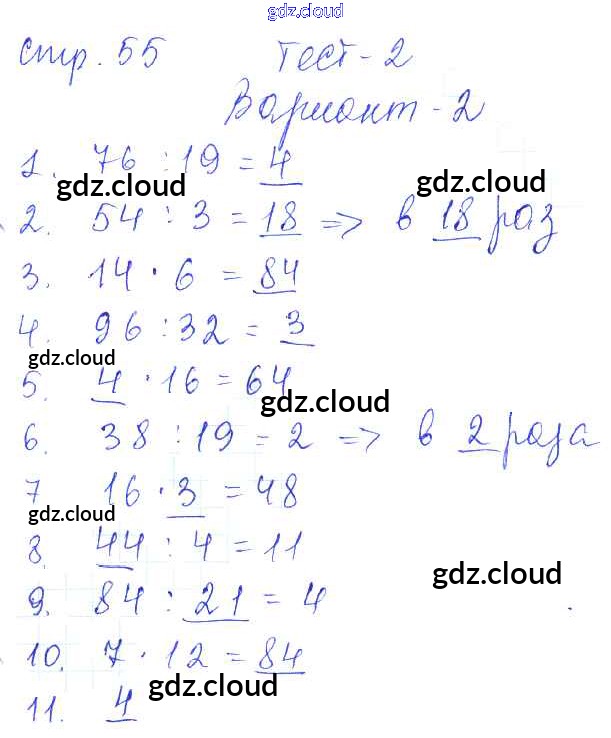 gdz.cloud
стр. 55 Тест - 2
Вариант - 2
1. 76 : 19 = 4
gdz.cloud gdz.cloud
2. 54 : 3 = 18 => в 18 раз
3. 14 · 6 = 84
4. 96 : 32 = 3
gdz.cloud
5. 4 · 16 = 64
gdz.cloud
6. 38 : 19 = 2 => в 2 раза
7 16 · 3 = 48
gdz.cloud
8. 44 : 4 = 11
gdz.cloud
9. 84 : 21 = 4
10. 7 · 12 = 84
gdz.cloud
11. 4